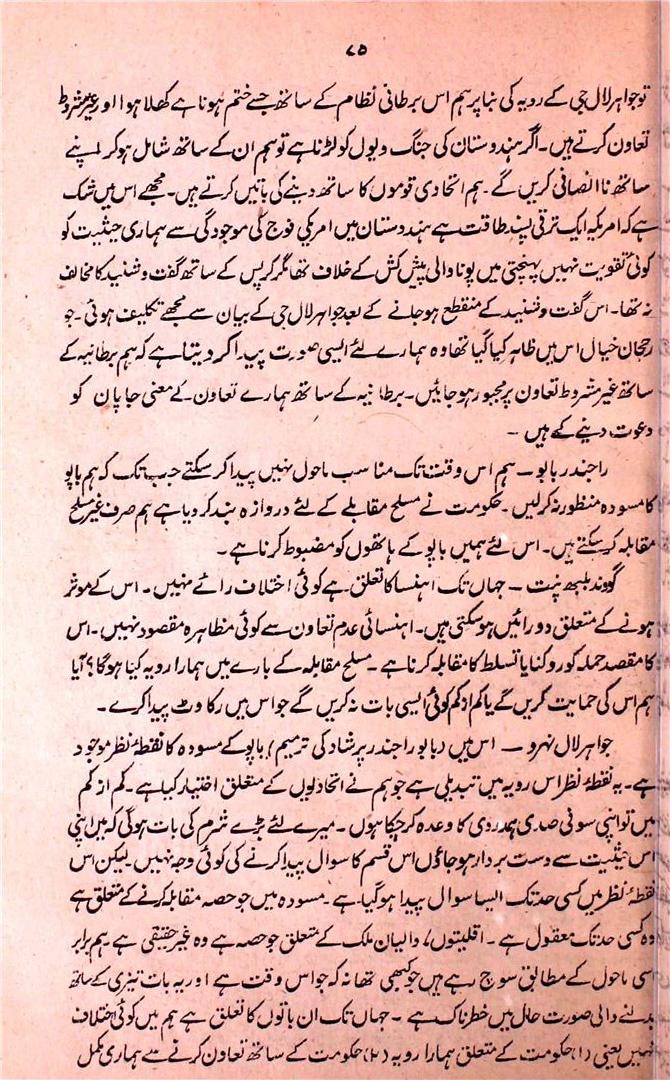 ۷۵
تو جواہر لال جی کے رویہ کی بنا پر ہم اس برطانی نظام کے ساتھ جسے ختم ہونا ہے کھلا ہوا اور غیر مشروط
تعاون کرتے ہیں۔ اگر ہندوستان کی جنگ ویول کو لڑنا ہے تو ہم ان کے ساتھ شامل ہو کر اپنے
ساتھ نا انصافی کریں گے۔ ہم اتحادی قوموں کا ساتھ دینے کی باتیں کرتے ہیں۔ مجھے اس میں شک
ہے کہ امریکہ ایک ترقی پسند طاقت ہے ہندوستان میں امریکی فوج کی موجودگی سے ہماری حیثیت کو
کوئی تقویت نہیں پہنچتی میں پونا والی پیش کش کے خلاف تھا مگر کرپس کے ساتھ گفت و شنید کا مخالف
نہ تھا۔ اس گفت و شنید کے منقطع ہو جانے کے بعد جواہر لال جی کے بیان سے مجھے تکلیف ہوئی۔ جو
رجحان خیال اس میں ظاہر کیا گیا تھا وہ ہمارے لئے ایسی صورت پیدا کر دیتا ہے کہ ہم برطانیہ کے
ساتھ غیر مشروط تعاون پر مجبور ہو جائیں۔ برطانیہ کے ساتھ ہمارے تعاون کے معنی جاپان کو
دعوت دینے کے ہیں ۔
راجندر بابو ۔ ہم اس وقت تک مناسب ماحول نہیں پیدا کر سکتے جب تک کہ ہم باپو
کا مسودہ منظور نہ کر لیں۔ حکومت نے مسلح مقابلے کے لئے دروازہ بند کر دیا ہے ہم صرف غیر مسلح
مقابلہ کر سکتے ہیں۔ اس لئے ہمیں باپو کے ہاتھوں کو مضبوط کرنا ہے ۔
گووند بلبھ پنت ۔ جہاں تک اہنسا کا تعلق ہے کوئی اختلاف رائے نہیں۔ اس کے موثر
ہونے کے متعلق دو رائیں ہو سکتی ہیں۔ اہنسائی عدم تعاون سے کوئی مظاہرہ مقصود نہیں۔ اس
کا مقصد حملہ کو روکنا یا تسلط کا مقابلہ کرنا ہے۔ مسلح مقابلہ کے بارے میں ہمارا رویہ کیا ہوگا؟ آیا
ہم اس کی حمایت کریں گے یا کم از کم کوئی ایسی بات نہ کریں گے جو اس میں رکاوٹ پیدا کرے ۔
جواہر لال نہرو ۔ اس میں (بابو راجندر پرشاد کی ترمیم) باپو کے مسودہ کا نقطۂ نظر موجود
ہے۔ یہ نقطۂ نظر اس رویہ میں تبدیلی ہے جو ہم نے اتحادیوں کے متعلق اختیار کیا ہے۔ کم از کم
میں تو اپنی سو فی صدی ہمدردی کا وعدہ کر چکا ہوں۔ میرے لئے بڑے شرم کی بات ہوگی کہ میں اپنی
اس حیثیت سے دست بردار ہو جاؤں اس قسم کا سوال پیدا کرنے کی کوئی وجہ نہیں۔ لیکن اس
نقطۂ نظر میں کسی حد تک ایسا سوال پیدا ہو گیا ہے۔ مسودہ میں جو حصہ مقابلہ کرنے کے متعلق ہے
وہ کسی حد تک معقول ہے۔ اقلیتوں، والیان ملک کے متعلق جو حصہ ہے وہ غیر حقیقی ہے۔ ہم برابر
اسی ماحول کے مطابق سوچ رہے ہیں جو کبھی تھا نہ کہ جو اس وقت ہے اور یہ بات تیزی کے ساتھ
بدلنے والی صورت حال میں خطرناک ہے۔ جہاں تک ان باتوں کا تعلق ہے ہم میں کوئی اختلاف
نہیں یعنی (۱) حکومت کے متعلق ہمارا رویہ (۲) حکومت کے ساتھ تعاون کرنے سے ہماری مکمل